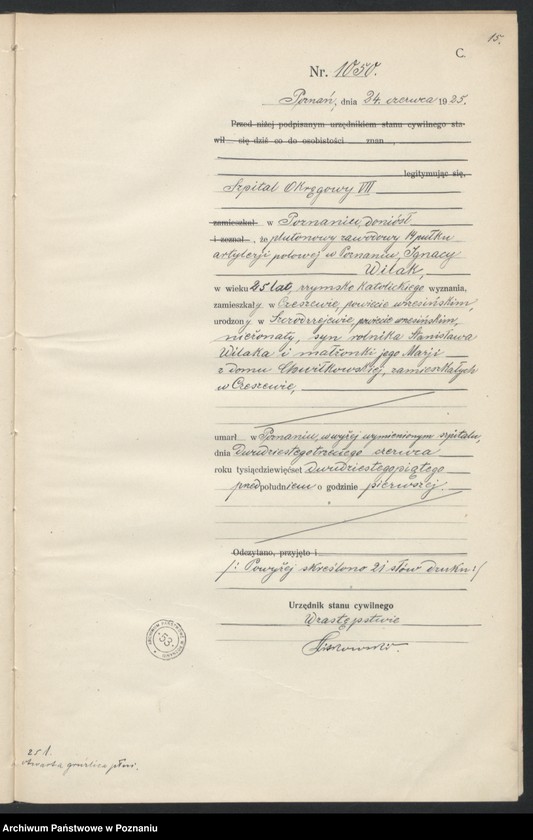 15.
C.
Nr. 1050.
Poznań, dnia 24. czerwca 1925.
Przed niżej podpisanym urzędnikiem stanu cywilnego sta-
wił się dziś co do osobistości znan ,
legitymując się,
Szpital Okręgowy VII
zamieszkał w Poznaniu, doniósł
i zeznał , że plutonowy zawodowy 14 pułku
artylerji polowej w Poznaniu, Ignacy
Wilak,
w wieku 25 lat, rzymsko katolickiego wyznania,
zamieszkały w Czeszewie, powiecie wrzesińskim,
urodzony w powiecie wrzesińskim,
nieżonaty, syn rolnika Stanisława
Wilaka i małżonki jego Marji
z domu Chwiłkowskiej, zamieszkałych
w Czeszewie,
umarł w Poznaniu, w wyżej wymienionym szpitalu,
dnia dwudziestego trzeciego czerwca
roku tysiącdziewięćset dwudziestego piątego
przed południem o godzinie pierwszej.
Odczytano, przyjęto i
/: Powyżej skreślono 21 słów druku :/
Urzędnik stanu cywilnego
W zastępstwie
ARCHIWUM PAŃSTWOWE W POZNANIU
53
25 l.
otwarta gruźlica płuc.
Archiwum Państwowe w Poznaniu